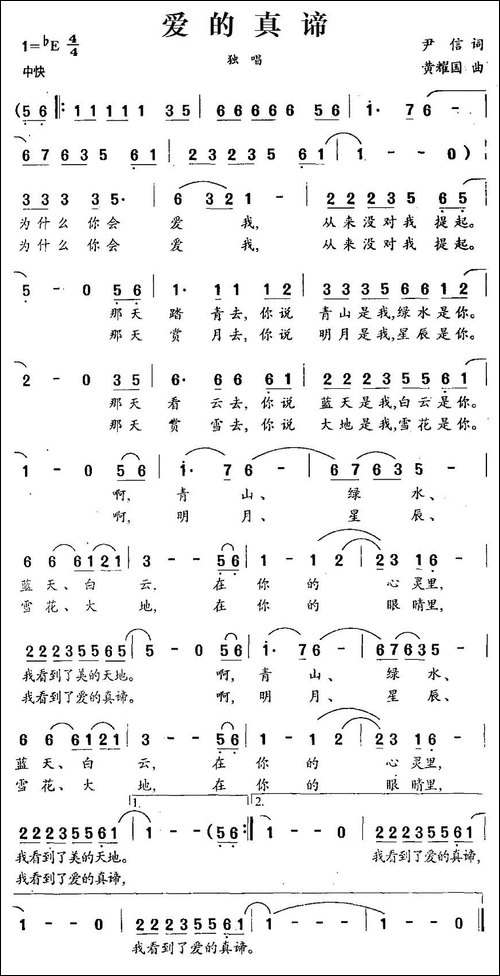 爱的真谛
1=♭E 4/4
尹信 词
中快
独唱
黄耀国 曲
(5 6 ‖: 1 1 1 1 1 3 5 | 6 6 6 6 6 5 6 | i· 7 6 -
6 7 6 3 5 6 1 | 2 3 2 3 5 6 1 | 1 - - 0 ) |
3 3 3 3 3 5· | 6 3 2 1 1 - | 2 2 2 3 5 6 5 |
为什么你会 爱 我, 从来没对我 提起。
为什么你会 爱 我, 从来没对我 提起。
5 - 0 5 6 | 1· 1 1 1 2 | 3 3 3 5 6 6 1 2 |
那天 踏 青去,你说 青山是我,绿水是你。
那天 赏 月去,你说 明月是我,星辰是你。
2 - 0 3 5 | 6· 6 6 6 1 | 2 2 2 3 5 5 6 1 |
那天 看 云去,你说 蓝天是我,白云是你。
那天 赏 雪去,你说 大地是我,雪花是你。
1 - 0 5 6 | i· 7 6 - | 6 7 6 3 5 - |
啊, 青 山、 绿 水、
啊, 明 月、 星 辰、
6 6 6 1 2 1 | 3 - - 5 6 | 1 - 1 2 | 2 3 1 6 - |
蓝天、白 云, 在 你 的 心灵里,
雪花、大 地, 在 你 的 眼睛里,
2 2 2 3 5 5 6 5 | 5 - 0 5 6 | i· 7 6 - | 6 7 6 3 5 - |
我看到了美的天地。 啊, 青 山、 绿 水、
我看到了爱的真谛。 啊, 明 月、 星 辰、
6 6 6 1 2 1 | 3 - - 5 6 | 1 - 1 2 | 2 3 1 6 - |
蓝天、白 云, 在 你 的 心灵里,
雪花、大 地, 在 你 的 眼睛里,
1. 2.
2 2 2 3 5 5 6 1 | 1 - - (5 6 :‖ 1 - - 0 | 2 2 2 3 5 5 6 1 |
我看到了美的天地。 我看到了爱的真谛,
我看到了爱的真谛,
1 - - 0 | 2 2 2 3 5 5 6 1 | 1 - - - | 1 - - 0 ‖
我看到了爱的真谛。